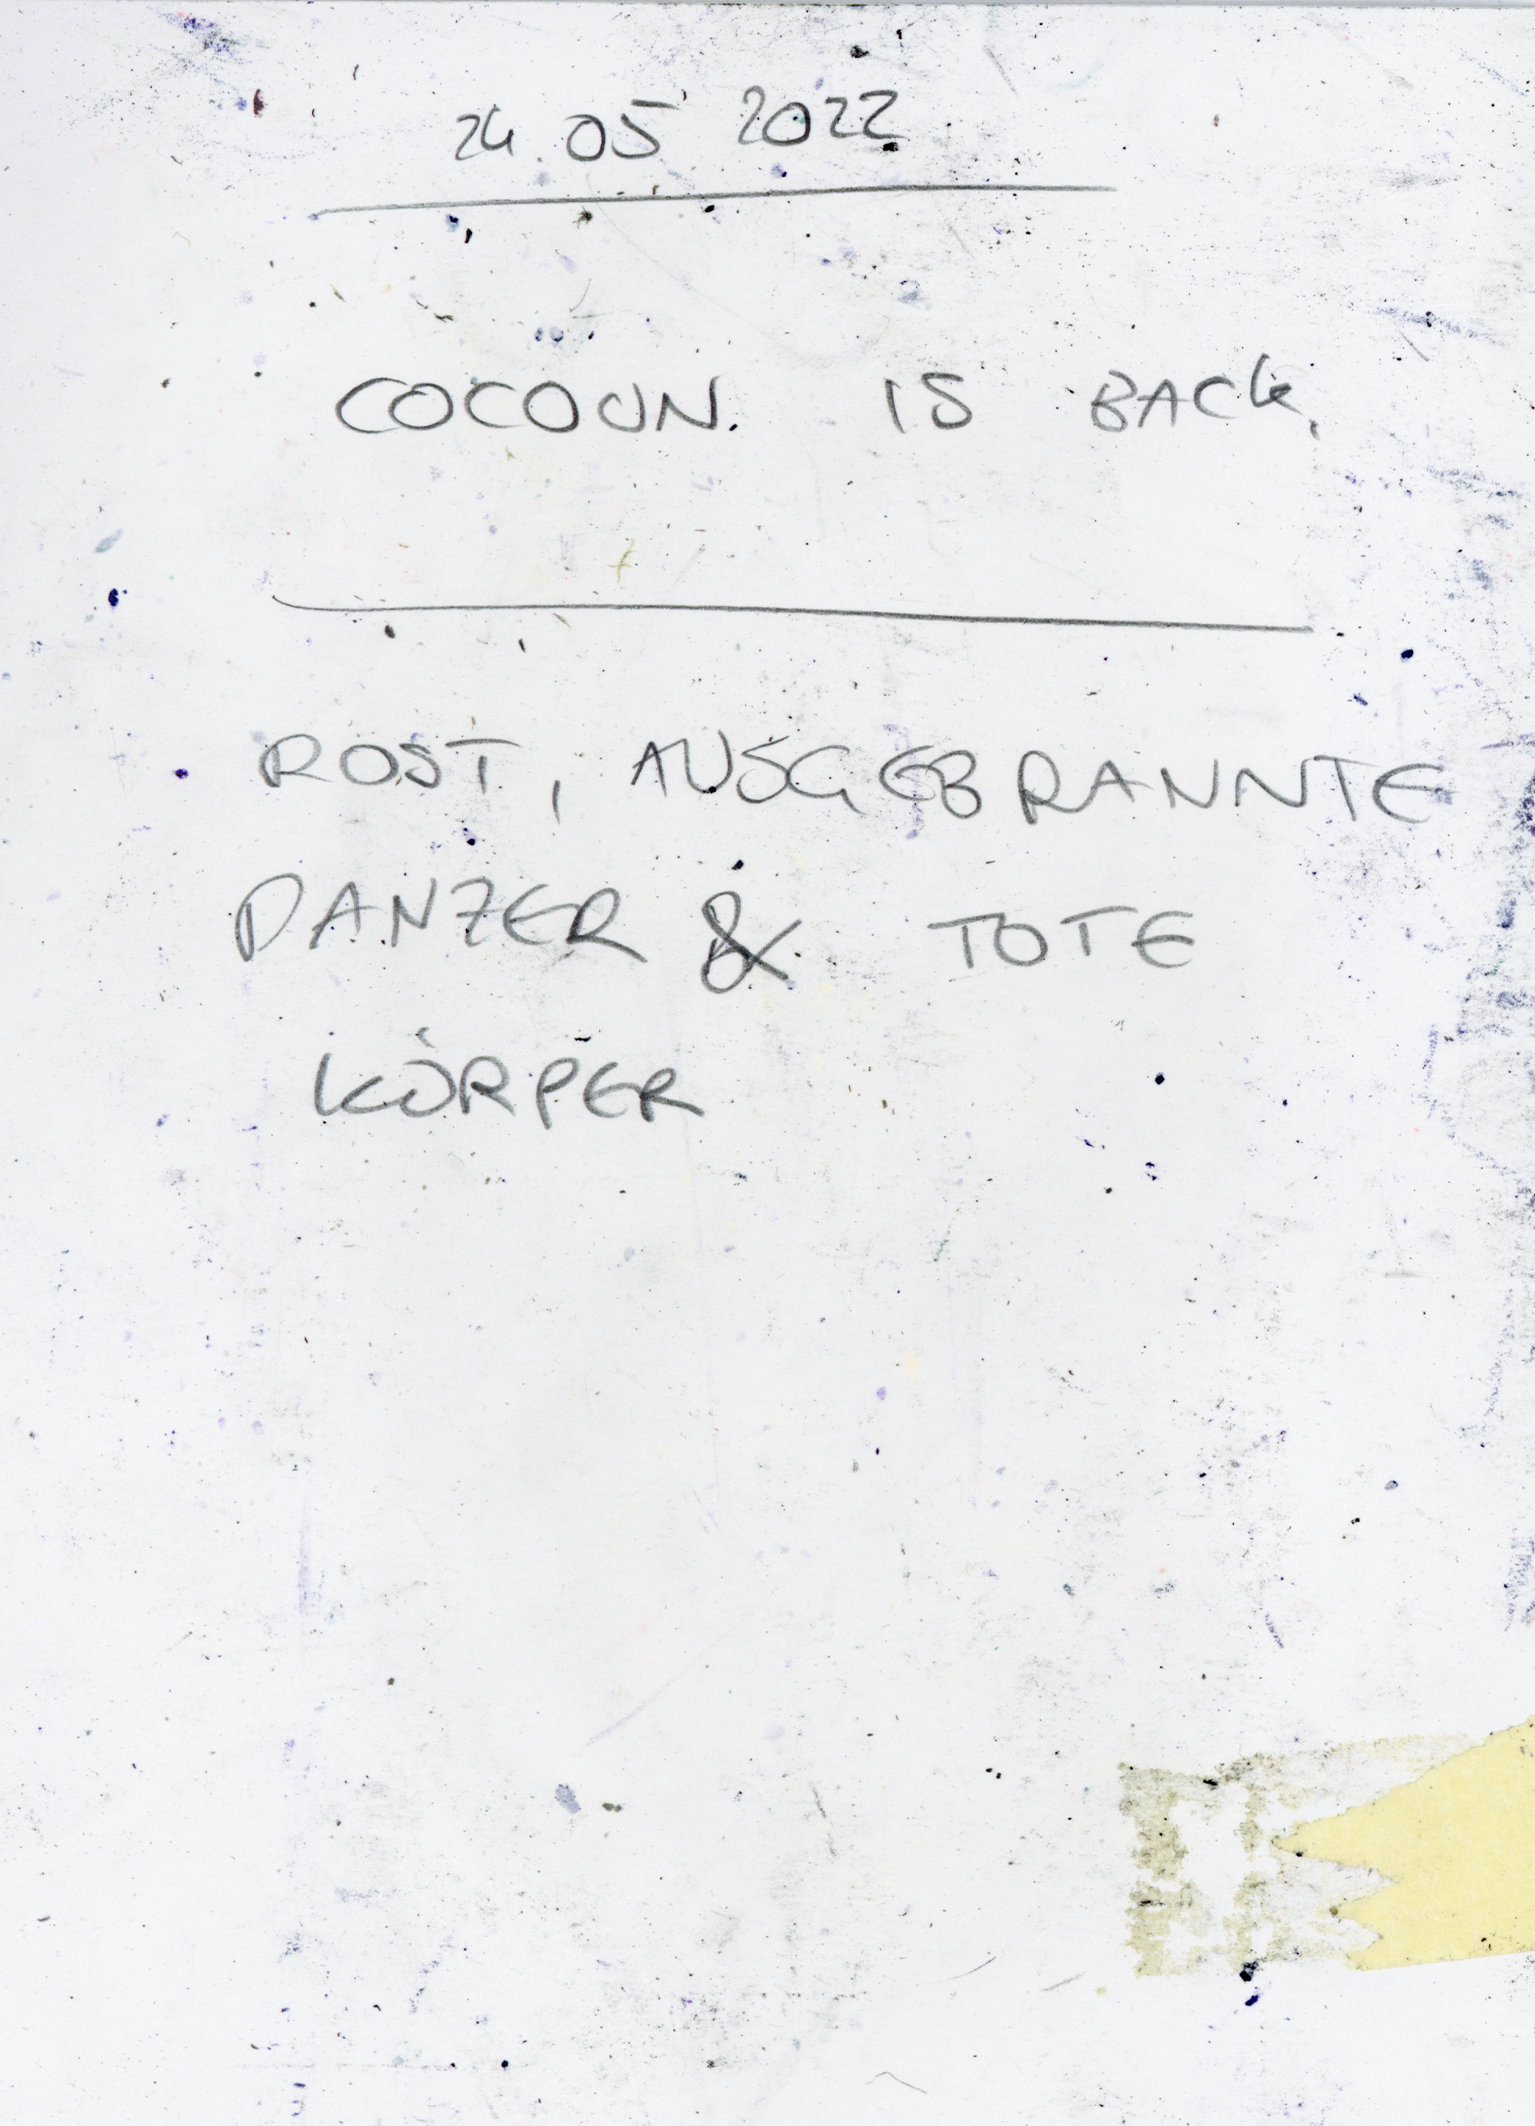 24.05 2022
COCOON. IS BACK.
ROST, AUSGEBRANNTE
PANZER & TOTE
KÖRPER